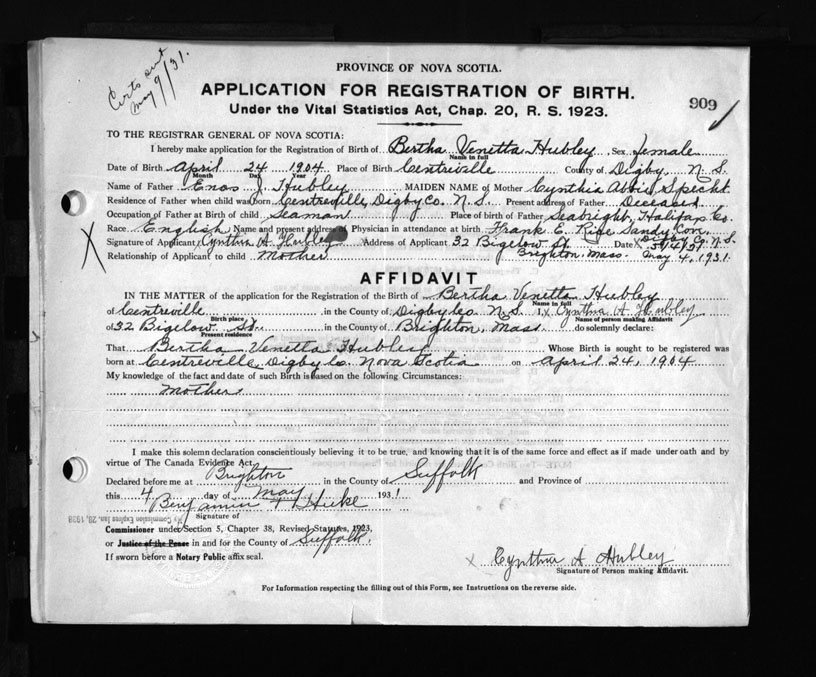 Certs out
May 9/31.
PROVINCE OF NOVA SCOTIA.
APPLICATION FOR REGISTRATION OF BIRTH.
909
Under the Vital Statistics Act, Chap. 20, R. S. 1923.
TO THE REGISTRAR GENERAL OF NOVA SCOTIA:
I hereby make application for the Registration of Birth of Bertha Venetta Hubley Sex female
Name in full
Date of Birth April 24 1904 Place of Birth Centreville County of Digby, N. S.
Month Day Year
Name of Father Enos J. Hubley MAIDEN NAME of Mother Cynthia Abbie Specht
Residence of Father when child was born Centreville, Digby Co. N. S. Present address of Father Deceased
Occupation of Father at Birth of child Seaman Place of birth of Father Seabright, Halifax Co.
Race English Name and present address of Physician in attendance at birth Frank E. Rice Sandy Cove
Digby Co. N. S.
X Signature of Applicant Cynthia A Hubley Address of Applicant 32 Bigelow St. Date X 5/4/31
Relationship of Applicant to child Mother Brighton, Mass. May 4, 1931.
AFFIDAVIT
IN THE MATTER of the application for the Registration of the Birth of Bertha Venetta Hubley
Name in full
of Centreville in the County of Digby Co. N. S. I, Cynthia A. Hubley
Birth place Name of person making Affidavit
of 32 Bigelow St. in the County of Brighton, Mass do solemnly declare:
Present residence
That Bertha Venetta Hubley Whose Birth is sought to be registered was
born at Centreville, Digby Co Nova Scotia on April 24, 1904
My knowledge of the fact and date of such Birth is based on the following Circumstances:
Mother
I make this solemn declaration conscientiously believing it to be true, and knowing that it is of the same force and effect as if made under oath and by
virtue of The Canada Evidence Act.
Declared before me at Brighton in the County of Suffolk and Province of
this 4 day of May 1931
Benjamin
Signature of
My Commission Expires Jan. 28, 1938
Commissioner under Section 5, Chapter 38, Revised Statutes, 1923,
or Justice of the Peace in and for the County of Suffolk.
If sworn before a Notary Public affix seal.
X Cynthia A Hubley
Signature of Person making Affidavit.
For Information respecting the filling out of this Form, see Instructions on the reverse side.